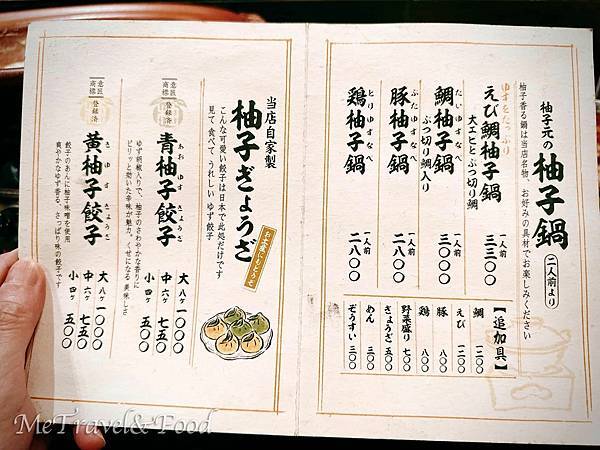 柚子元の柚子鍋 二人前より
柚子香る鍋は当店名物、お好みの具材でお楽しみください
ゆずをたっぷり
えび鯛柚子鍋 一人前 三三〇〇
大エビとぶつ切り鯛
たいゆずなべ
鯛柚子鍋 一人前 三〇〇〇
ぶつ切り鯛入り
ぶたゆずなべ
豚柚子鍋 一人前 二八〇〇
とりゆずなべ
鶏柚子鍋 一人前 二八〇〇
【追加具】
鯛 一二〇〇
えび 一二〇〇
豚 八〇〇
鶏 八〇〇
野菜盛り 七〇〇
ぎょうざ 五〇〇
めん 三〇〇
ぞうすい 三〇〇
当店自家製
柚子ぎょうざ
お土産にもどうぞ
こんな可愛い餃子は日本で此処だけです
見て 食べて うれしい ゆず餃子
意匠商標登録済
あおゆずぎょうざ
青柚子餃子
ゆず胡椒入りで、柚子のさわやかな香りに
ピリッと効いた辛味が魅力。くせになる美味しさ
大 八ヶ 一〇〇〇
中 六ヶ 七五〇
小 四ヶ 五〇〇
意匠商標登録済
きゆずぎょうざ
黄柚子餃子
餃子のあんに柚子味噌を使用
爽やかなゆず香る、さっぱり味の餃子です
大 八ヶ 一〇〇〇
中 六ヶ 七五〇
小 四ヶ 五〇〇
MeTravel&Food